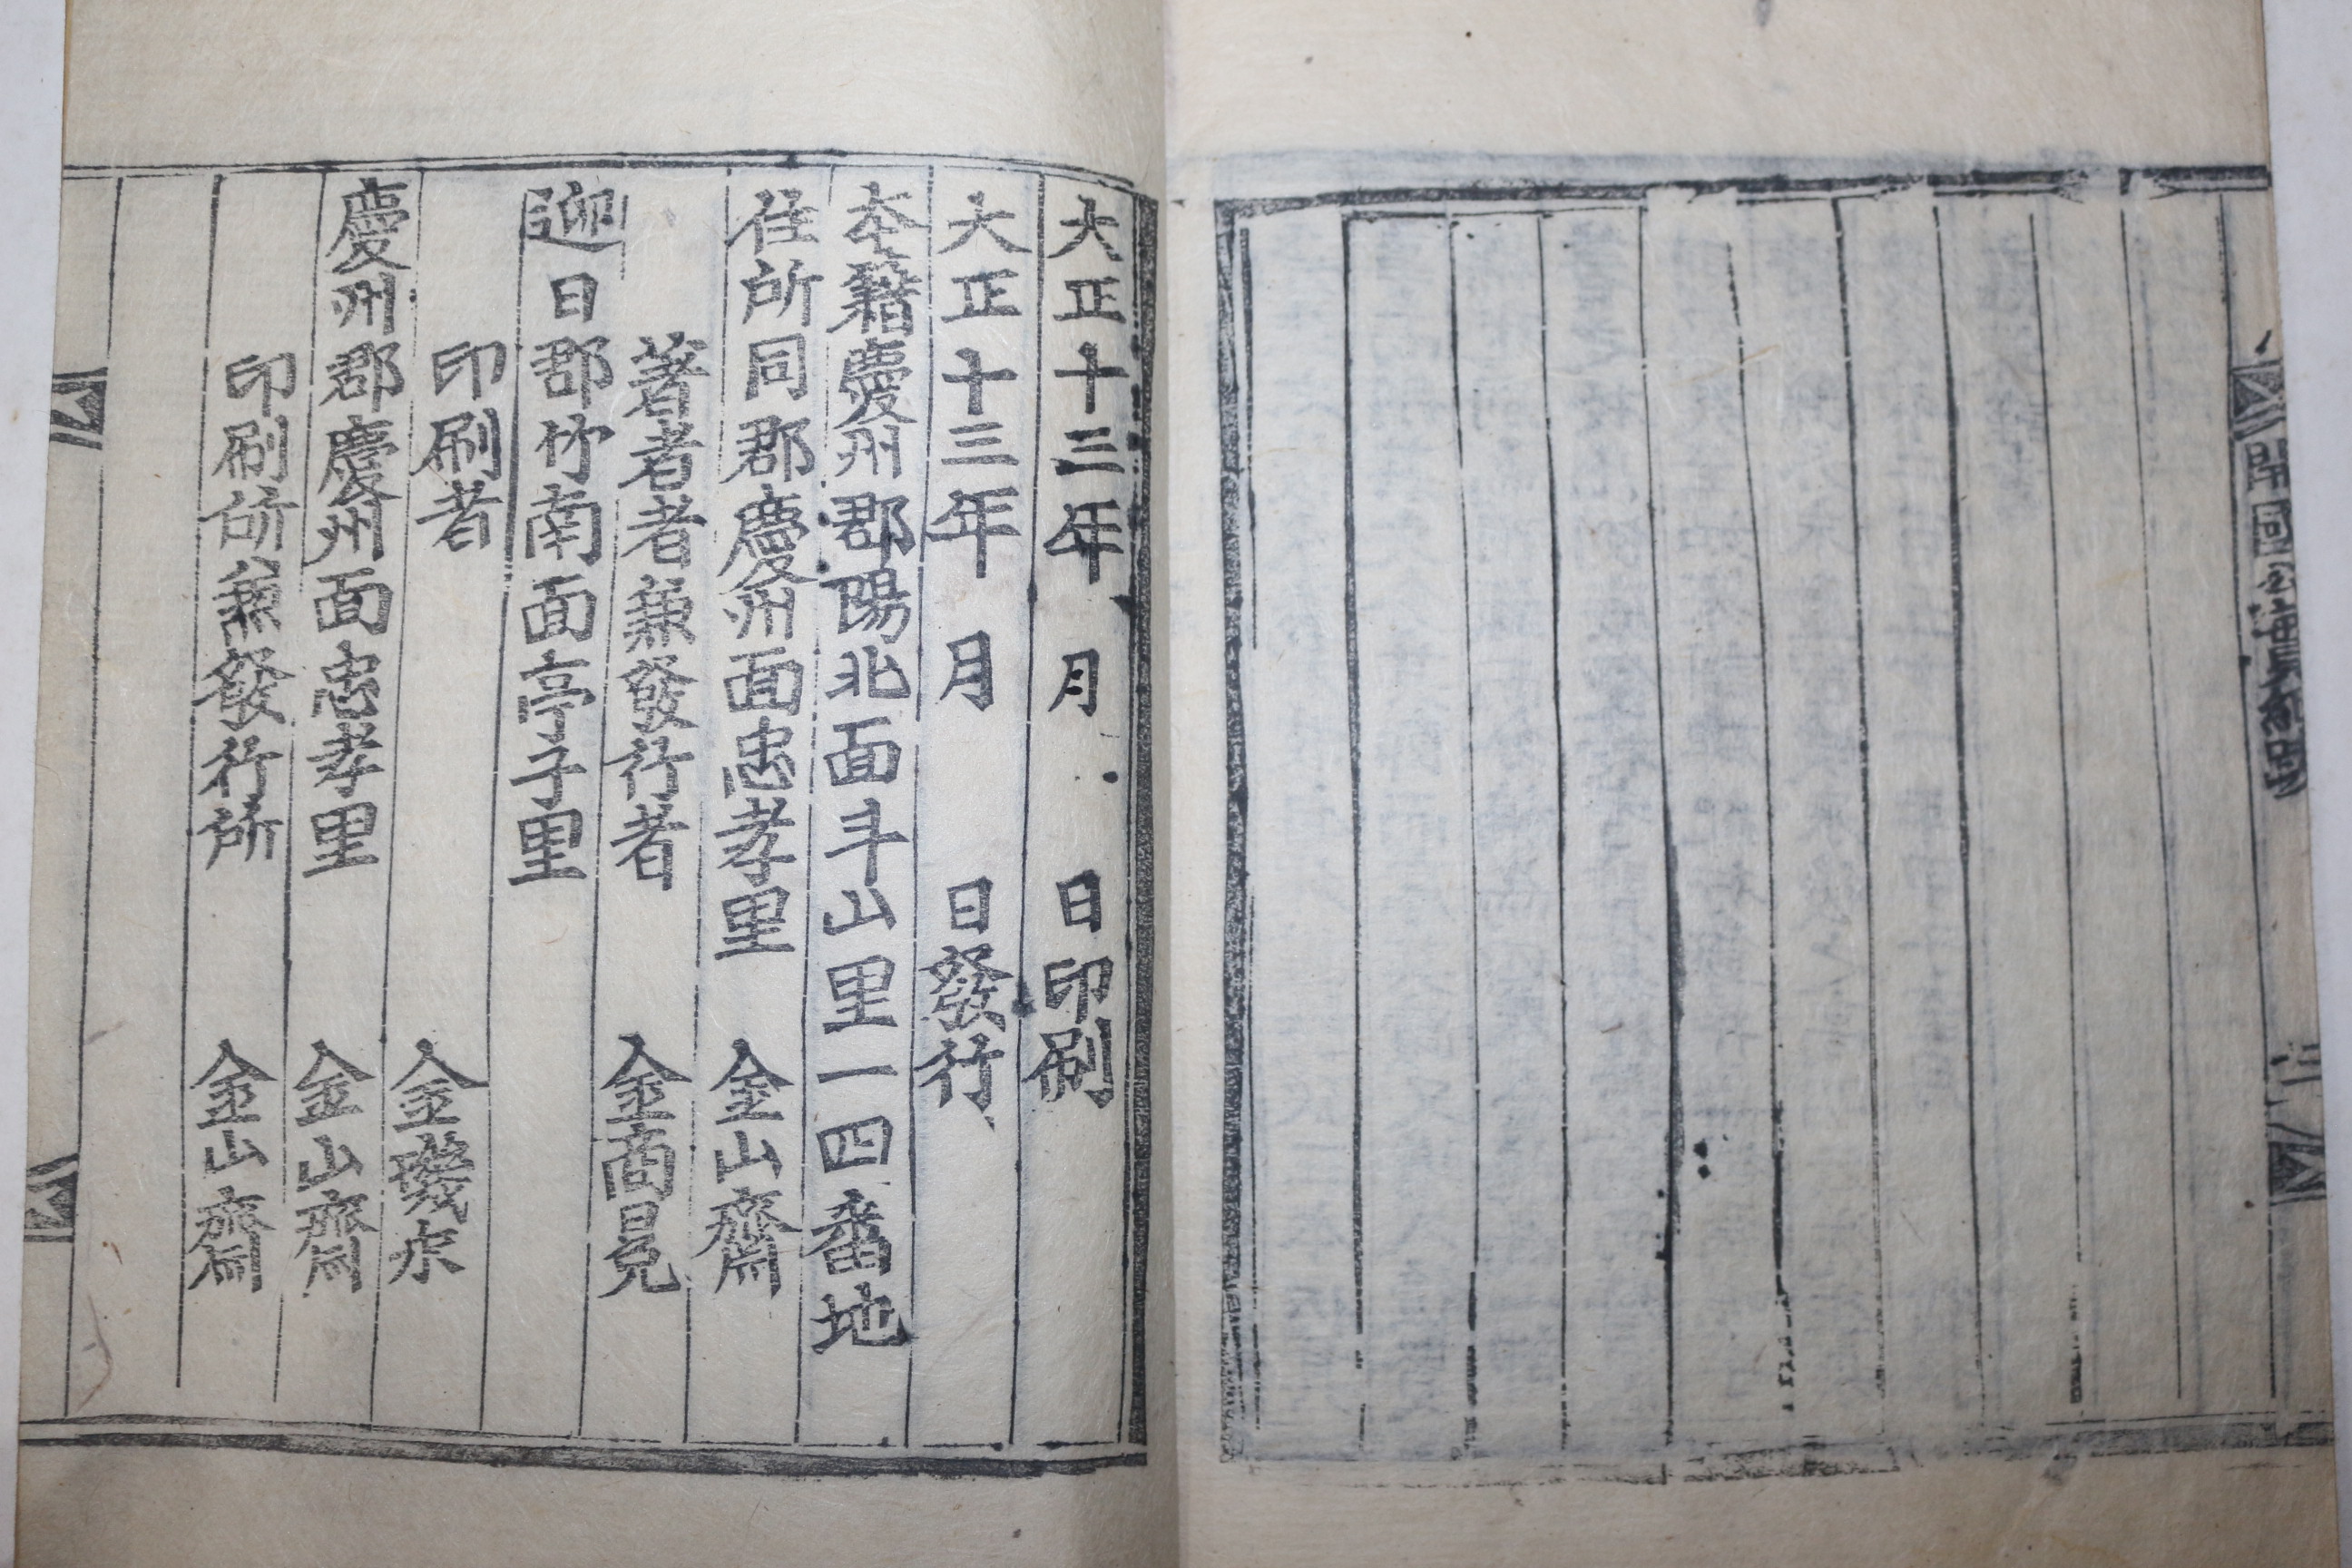 開國公
大正十三年 月 日印刷
大正十三年 月 日發行
本籍慶州郡陽北面斗山里一四番地
住所同郡慶州面忠孝里 金山齋
著者者兼發行者 金商冕
迎日郡竹南面亭子里
印刷者 金磯
慶州郡慶州面忠孝里 金山齋
印刷所兼發行所 金山齋